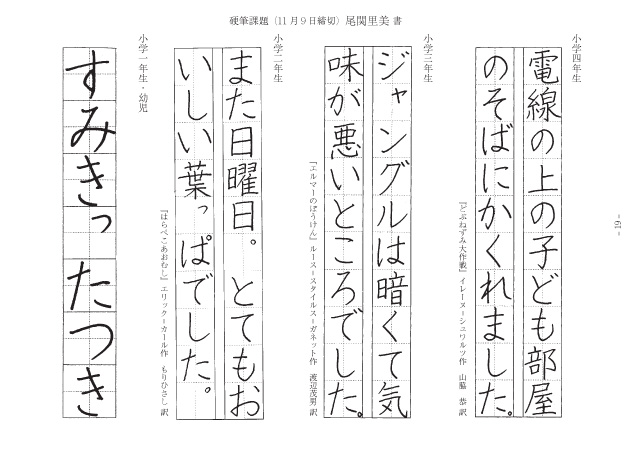 硬筆課題（11月9日締切）尾関里美 書
小学四年生
電線の上の子ども部屋
のそばにかくれました。
『どぶねずみ大作戦』イレーヌ＝シュワルツ作　山脇　恭 訳
小学三年生
ジャングルは暗くて気
味が悪いところでした。
『エルマーのぼうけん』ルース＝スタイルス＝ガネット作　渡辺茂男 訳
小学二年生
また日曜日。　とてもお
いしい葉っぱでした。
『はらぺこあおむし』エリック＝カール作　もりひさし 訳
小学一年生・幼児
すみきっ　たつき
- 19 -